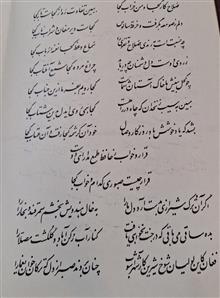 صلاح کار کجا و من خراب کجا ببین تفاوت ره کز کجاست تا بکجا
دلم ز صومعه بگرفت و خرقه سالوس کجاست دیر مغان و شراب ناب کجا
چه نسبت است برندی صلاح و تقوا را سماع وعظ کجا نغمه رباب کجا
ز روی دوست دل دشمنان چه دریابد چراغ مرده کجا شمع آفتاب کجا
چو کحل بینش ما خاک آستان شماست کجا رویم بفرما ازین جناب کجا
مبین به سیب زنخدان که چاه در راهست کجا همی روی ای دل بدین شتاب کجا
بشد که یاد خوشش باد روزگار وصال خود آن کرشمه کجا رفت و آن عتاب کجا
قرار و خواب ز حافظ طمع مدار ای دوست
قرار چیست صبوری کدام و خواب کجا
اگر آن ترک شیرازی بدست آرد دل ما را به خال هندویش بخشم سمرقند و بخارا را
بده ساقی می باقی که در جنت نخواهی یافت کنار آب رکن آباد و گلگشت مصلا را
فغان کاین لولیان شوخ شیرین کار شهر آشوب چنان بردند صبر از دل که ترکان خوان یغما را